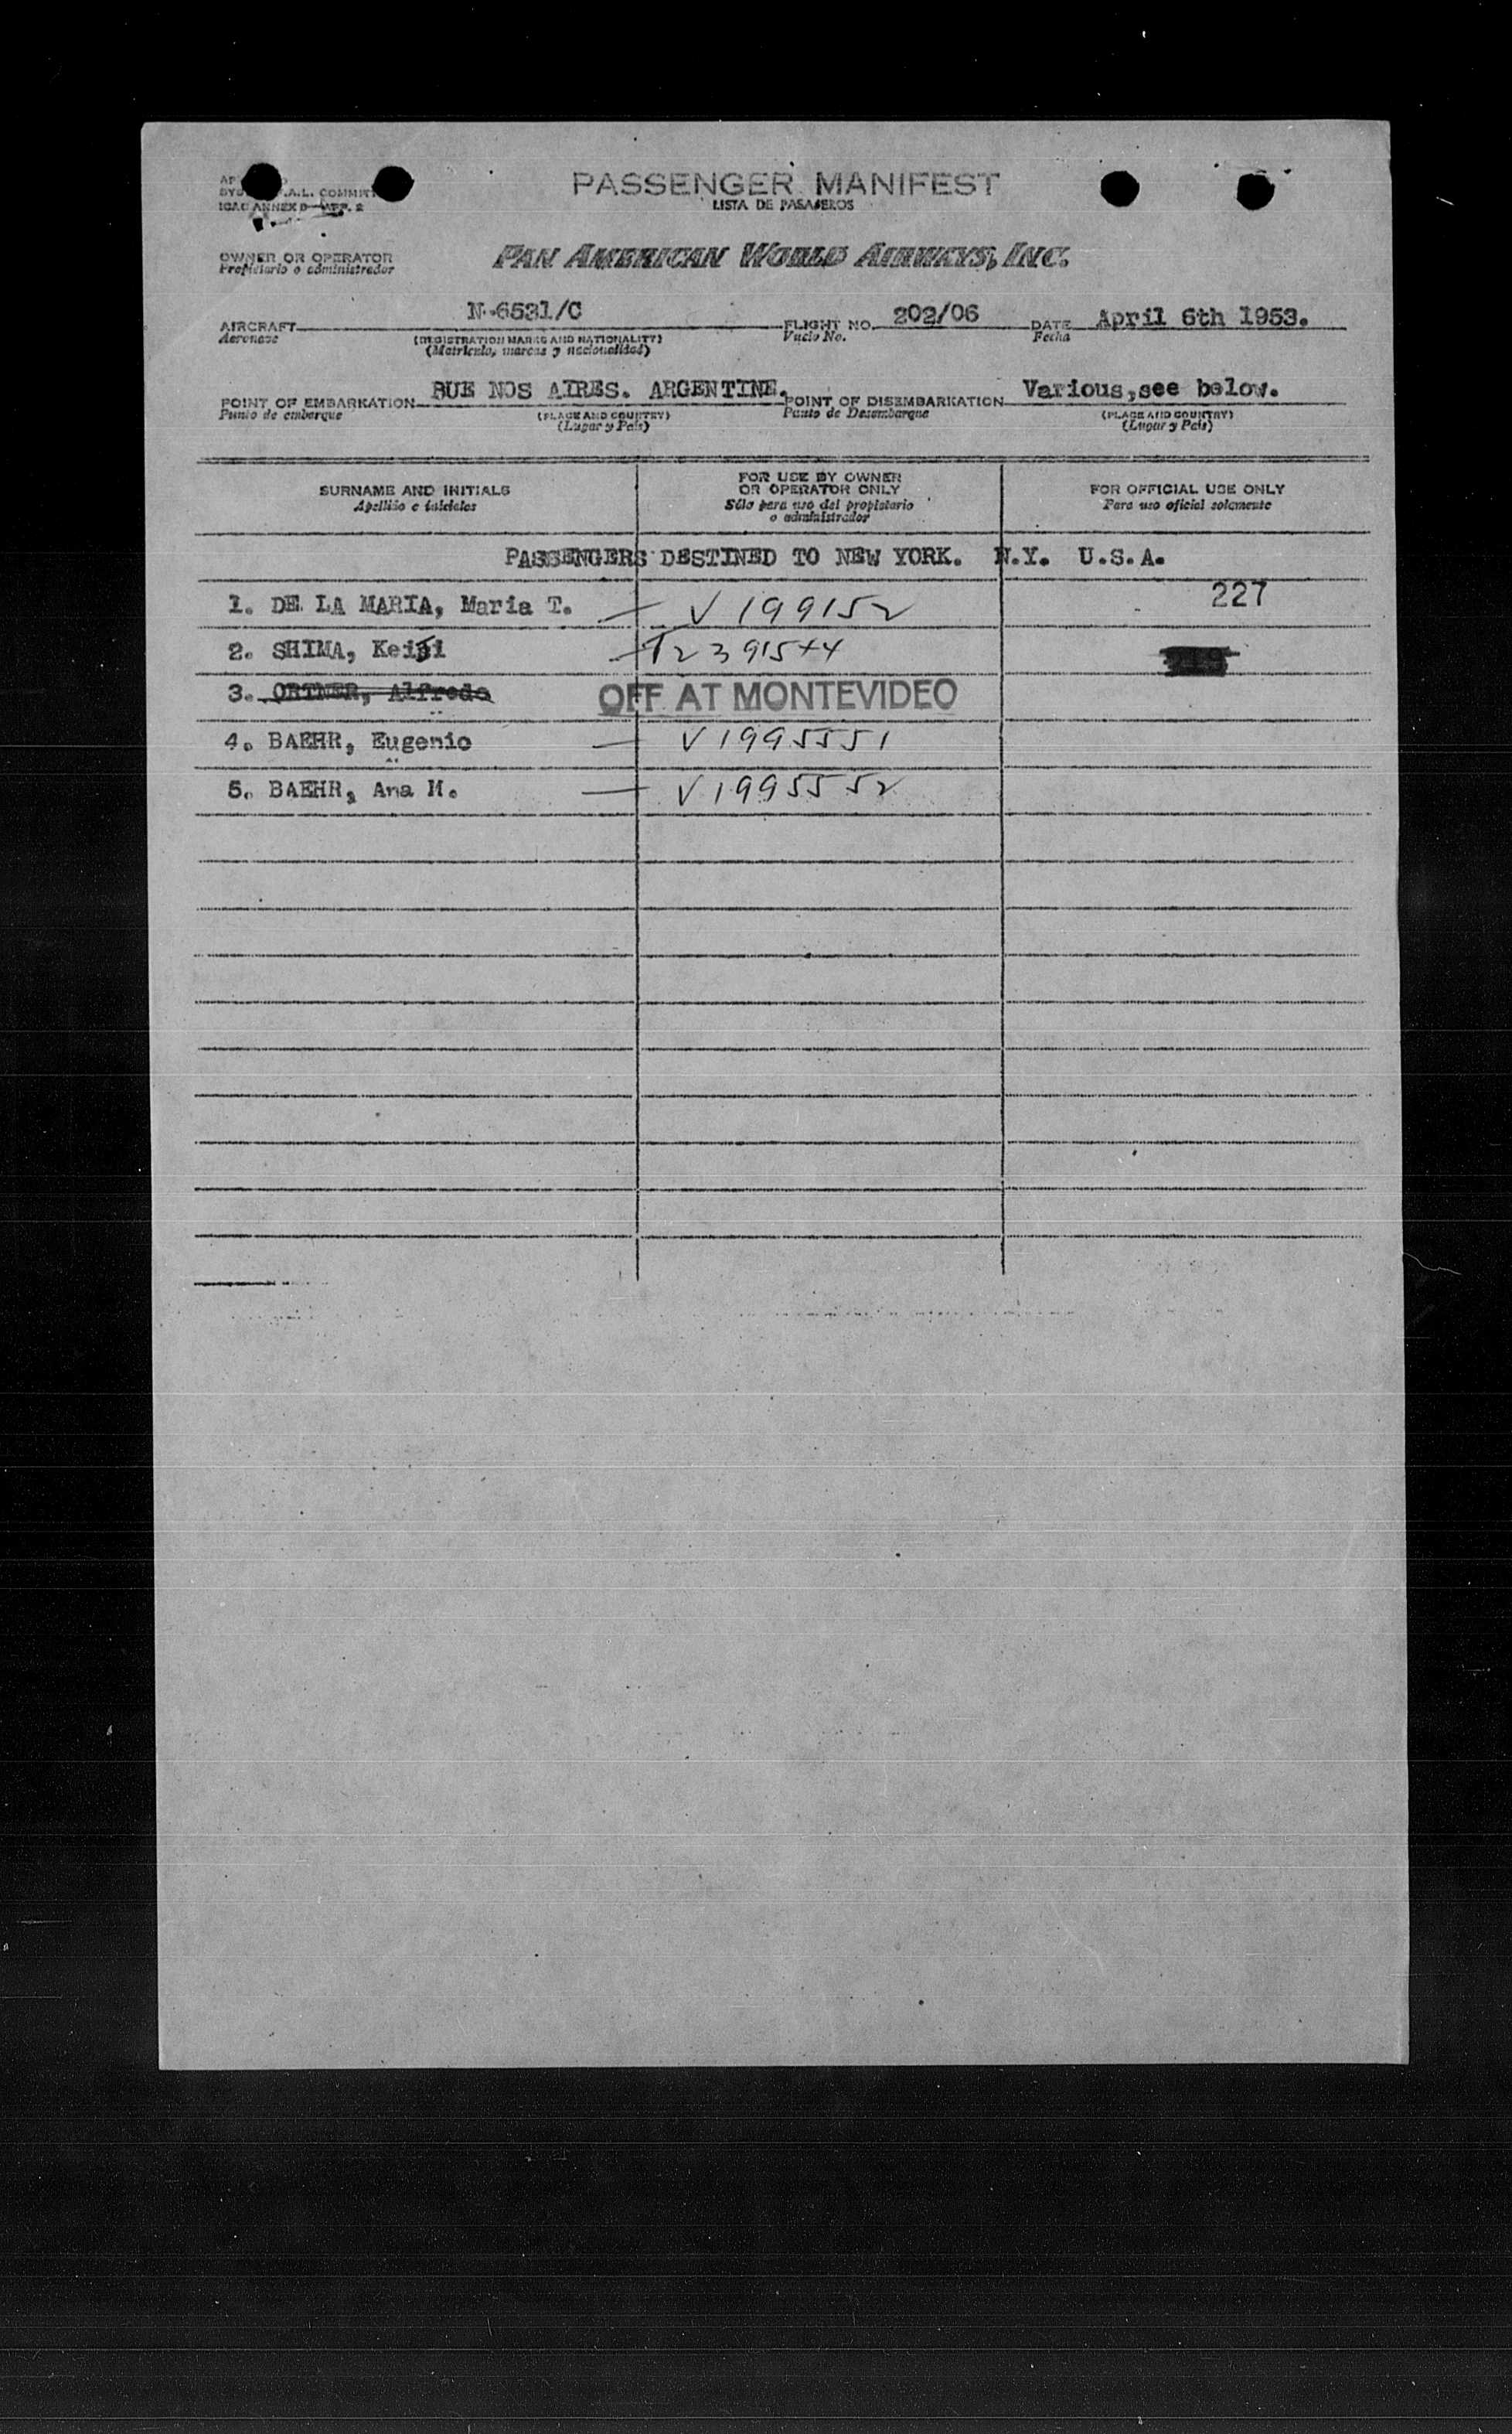 PASSENGER MANIFEST
LISTA DE PASAJEROS
F.A.L. COMMIT
ICAO ANNEX 9 APP. 2
OWNER OR OPERATOR
Propietario o administrador
PAN AMERICAN WORLD AIRWAYS, INC.
AIRCRAFT N-6531/C FLIGHT NO. 202/06 DATE April 6th 1953.
Aeronave (REGISTRATION MARKS AND NATIONALITY) Vuelo No. Fecha
(Matrícula, marcas y nacionalidad)
POINT OF EMBARKATION BUE NOS AIRES. ARGENTINE. POINT OF DISEMBARKATION Various,see below.
Punto de embarque (PLACE AND COUNTRY) Punto de Desembarque (PLACE AND COUNTRY)
(Lugar y País) (Lugar y País)
SURNAME AND INITIALS
Apellido e iniciales
FOR USE BY OWNER
OR OPERATOR ONLY
Sólo para uso del propietario
o administrador
FOR OFFICIAL USE ONLY
Para uso oficial solamente
PASSENGERS DESTINED TO NEW YORK. N.Y. U.S.A.
1. DE LA MARIA, Maria T. — V 199152 227
2. SHIMA, Keiji — T2391544
3. ORTNER, Alfredo OFF AT MONTEVIDEO
4. BAEHR, Eugenio — V1995551
5. BAEHR, Ana M. — V1995552